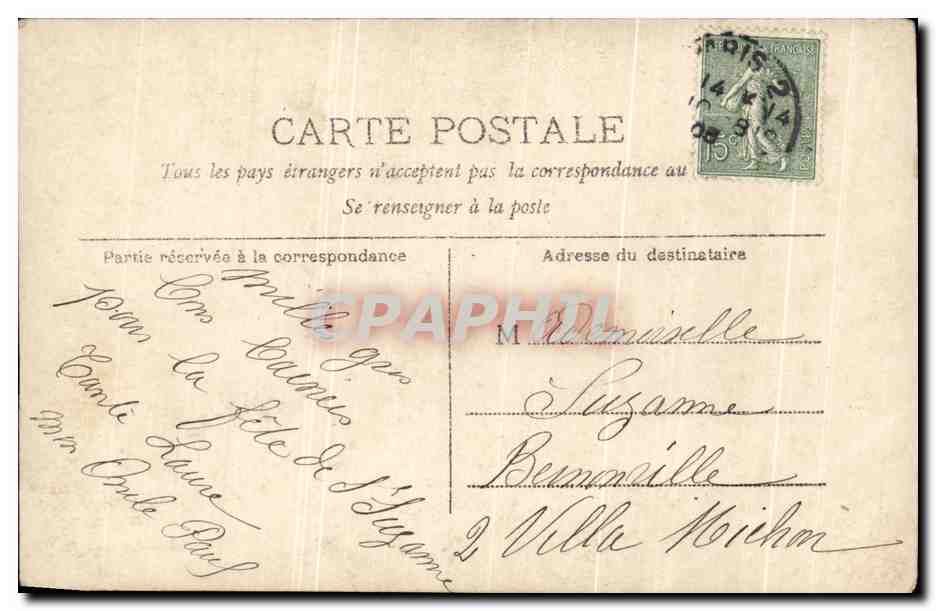 CARTE POSTALE
Tous les pays étrangers n'acceptent pas la correspondance au
Se renseigner à la poste
PARIS 2
14
08
15c
Partie réservée à la correspondance
Mille gros
bons baisers
pour la fête de Ste Suzanne
Tante Laure
mon Oncle Paul
Adresse du destinataire
Mademoiselle
Suzanne
2 Villa Michon
CPAPHIL